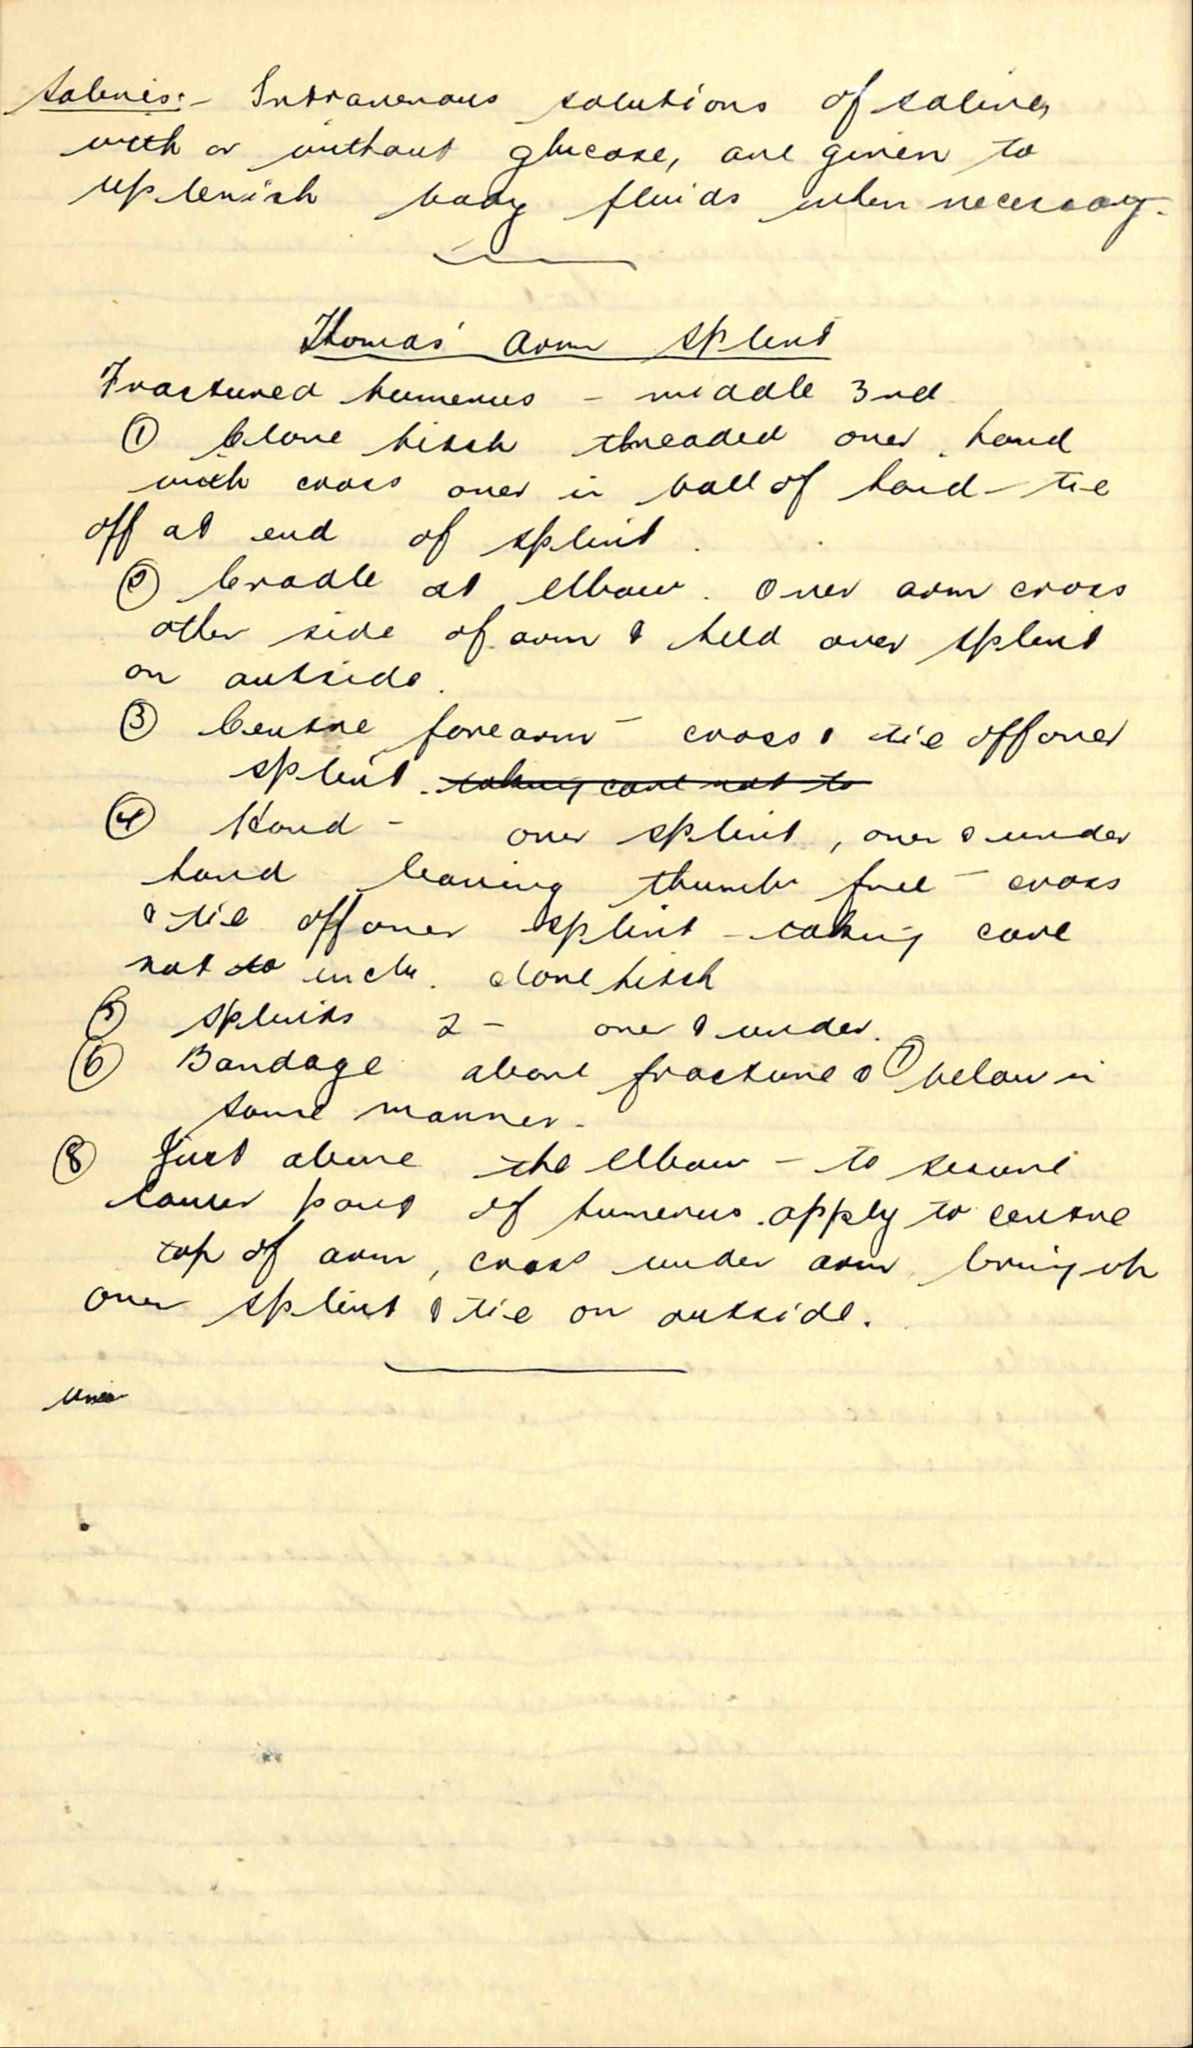 Salines:- Intravenous solutions of saline,
with or without glucose, are given to
replenish body fluids when necessary.
Thomas' Arm Splint
Fractured humerus - middle 3rd
① Clove hitch threaded over hand
with cross over in ball of hand - tie
off at end of splint.
② Cradle at elbow. Over arm cross
other side of arm & held over splint
on outside.
③ Centre forearm - cross & tie off over
splint. taking care not to
④ Hand - over splint, over & under
hand leaving thumb free - cross
& tie off over splint - taking care
not to inclu. clove hitch
⑤ Splints 2 - over & under.
⑥ Bandage above fracture & ⑦ below in
same manner.
⑧ Just above the elbow - to secure
lower part of humerus. apply to centre
top of arm, cross under arm, bring up
over splint & tie on outside.